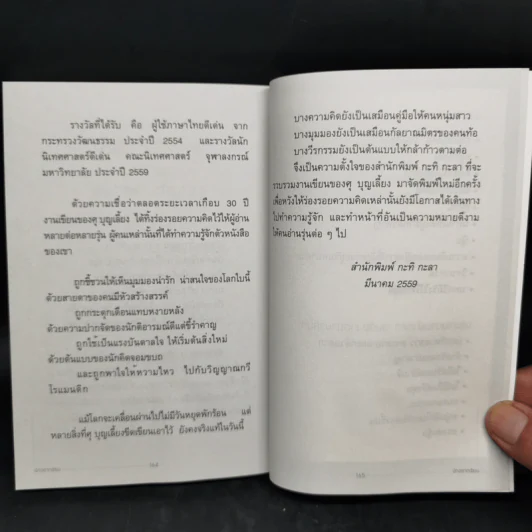 รางวัลที่ได้รับ คือ ผู้ใช้ภาษาไทยดีเด่น จาก
กระทรวงวัฒนธรรม ประจำปี 2554 และรางวัลนัก
นิเทศศาสตร์ดีเด่น คณะนิเทศศาสตร์ จุฬาลงกรณ์
มหาวิทยาลัย ประจำปี 2559
ด้วยความเชื่อว่าตลอดระยะเวลาเกือบ 30 ปี
งานเขียนของศุ บุญเลี้ยง ได้ทิ้งร่องรอยความคิดไว้ให้ผู้อ่าน
หลายต่อหลายรุ่น ผู้คนเหล่านั้นที่ได้ทำความรู้จักตัวหนังสือ
ของเขา
ถูกชี้ชวนให้เห็นมุมมองน่ารัก น่าสนใจของโลกใบนี้
ด้วยสายตาของคนมีหัวสร้างสรรค์
ถูกกระตุกเตือนแทบหงายหลัง
ด้วยความปากจัดของนักคิดอารมณ์ดีแต่ขี้รำคาญ
ถูกใช้เป็นแรงบันดาลใจ ให้เริ่มต้นสิ่งใหม่
ด้วยต้นแบบของนักคิดจอมขบถ
และถูกพาใจให้หวามไหว ไปกับวิญญาณกวี
โรแมนติก
แม้โลกจะเคลื่อนผ่านไปไม่มีวันหยุดพักร้อน แต่
หลายสิ่งที่ศุ บุญเลี้ยงขีดเขียนเอาไว้ ยังคงจริงแท้ในวันนี้
บางความคิดยังเป็นเสมือนคู่มือให้คนหนุ่มสาว
บางมุมมองยังเป็นเสมือนกัลยาณมิตรของคนท้อ
บางวีรกรรมยังเป็นต้นแบบให้กล้าก้าวตามต่อ
จึงเป็นความตั้งใจของสำนักพิมพ์ กะทิ กะลา ที่จะ
รวบรวมงานเขียนของศุ บุญเลี้ยง มาจัดพิมพ์ใหม่อีกครั้ง
เพื่อหวังให้ร่องรอยความคิดเหล่านั้นยังมีโอกาสได้เดินทาง
ไปทำความรู้จัก และทำหน้าที่อันเป็นความหมายดีงาม
ให้คนอ่านรุ่นต่อ ๆ ไป
สำนักพิมพ์ กะทิ กะลา
มีนาคม 2559